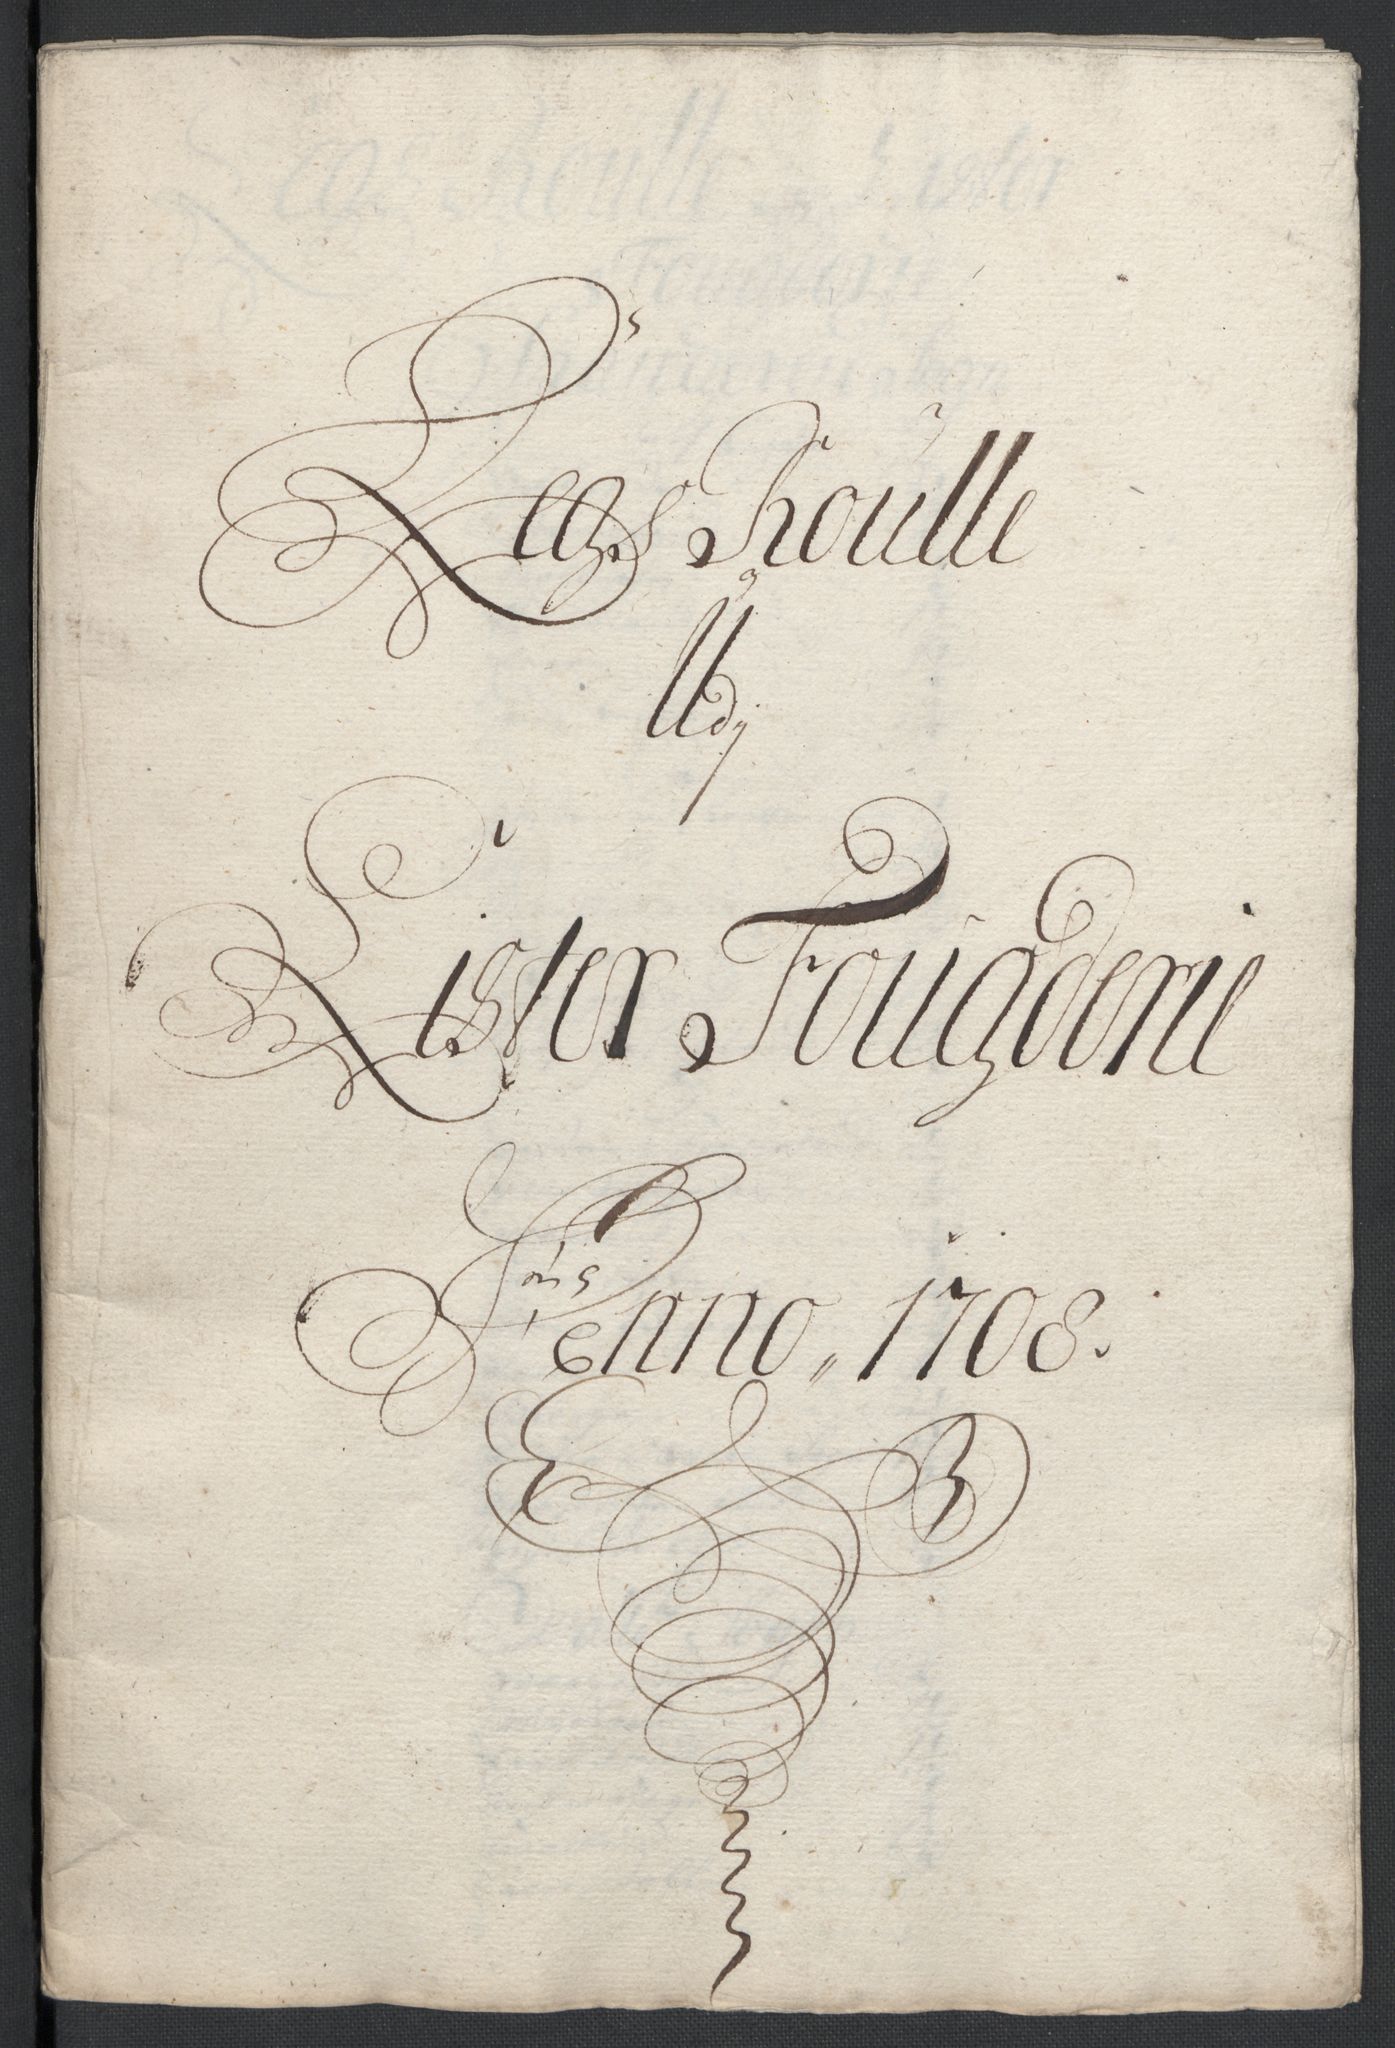 Leÿs Roulle
Udj
Lister Fougderie
Pro
Anno, 1708.